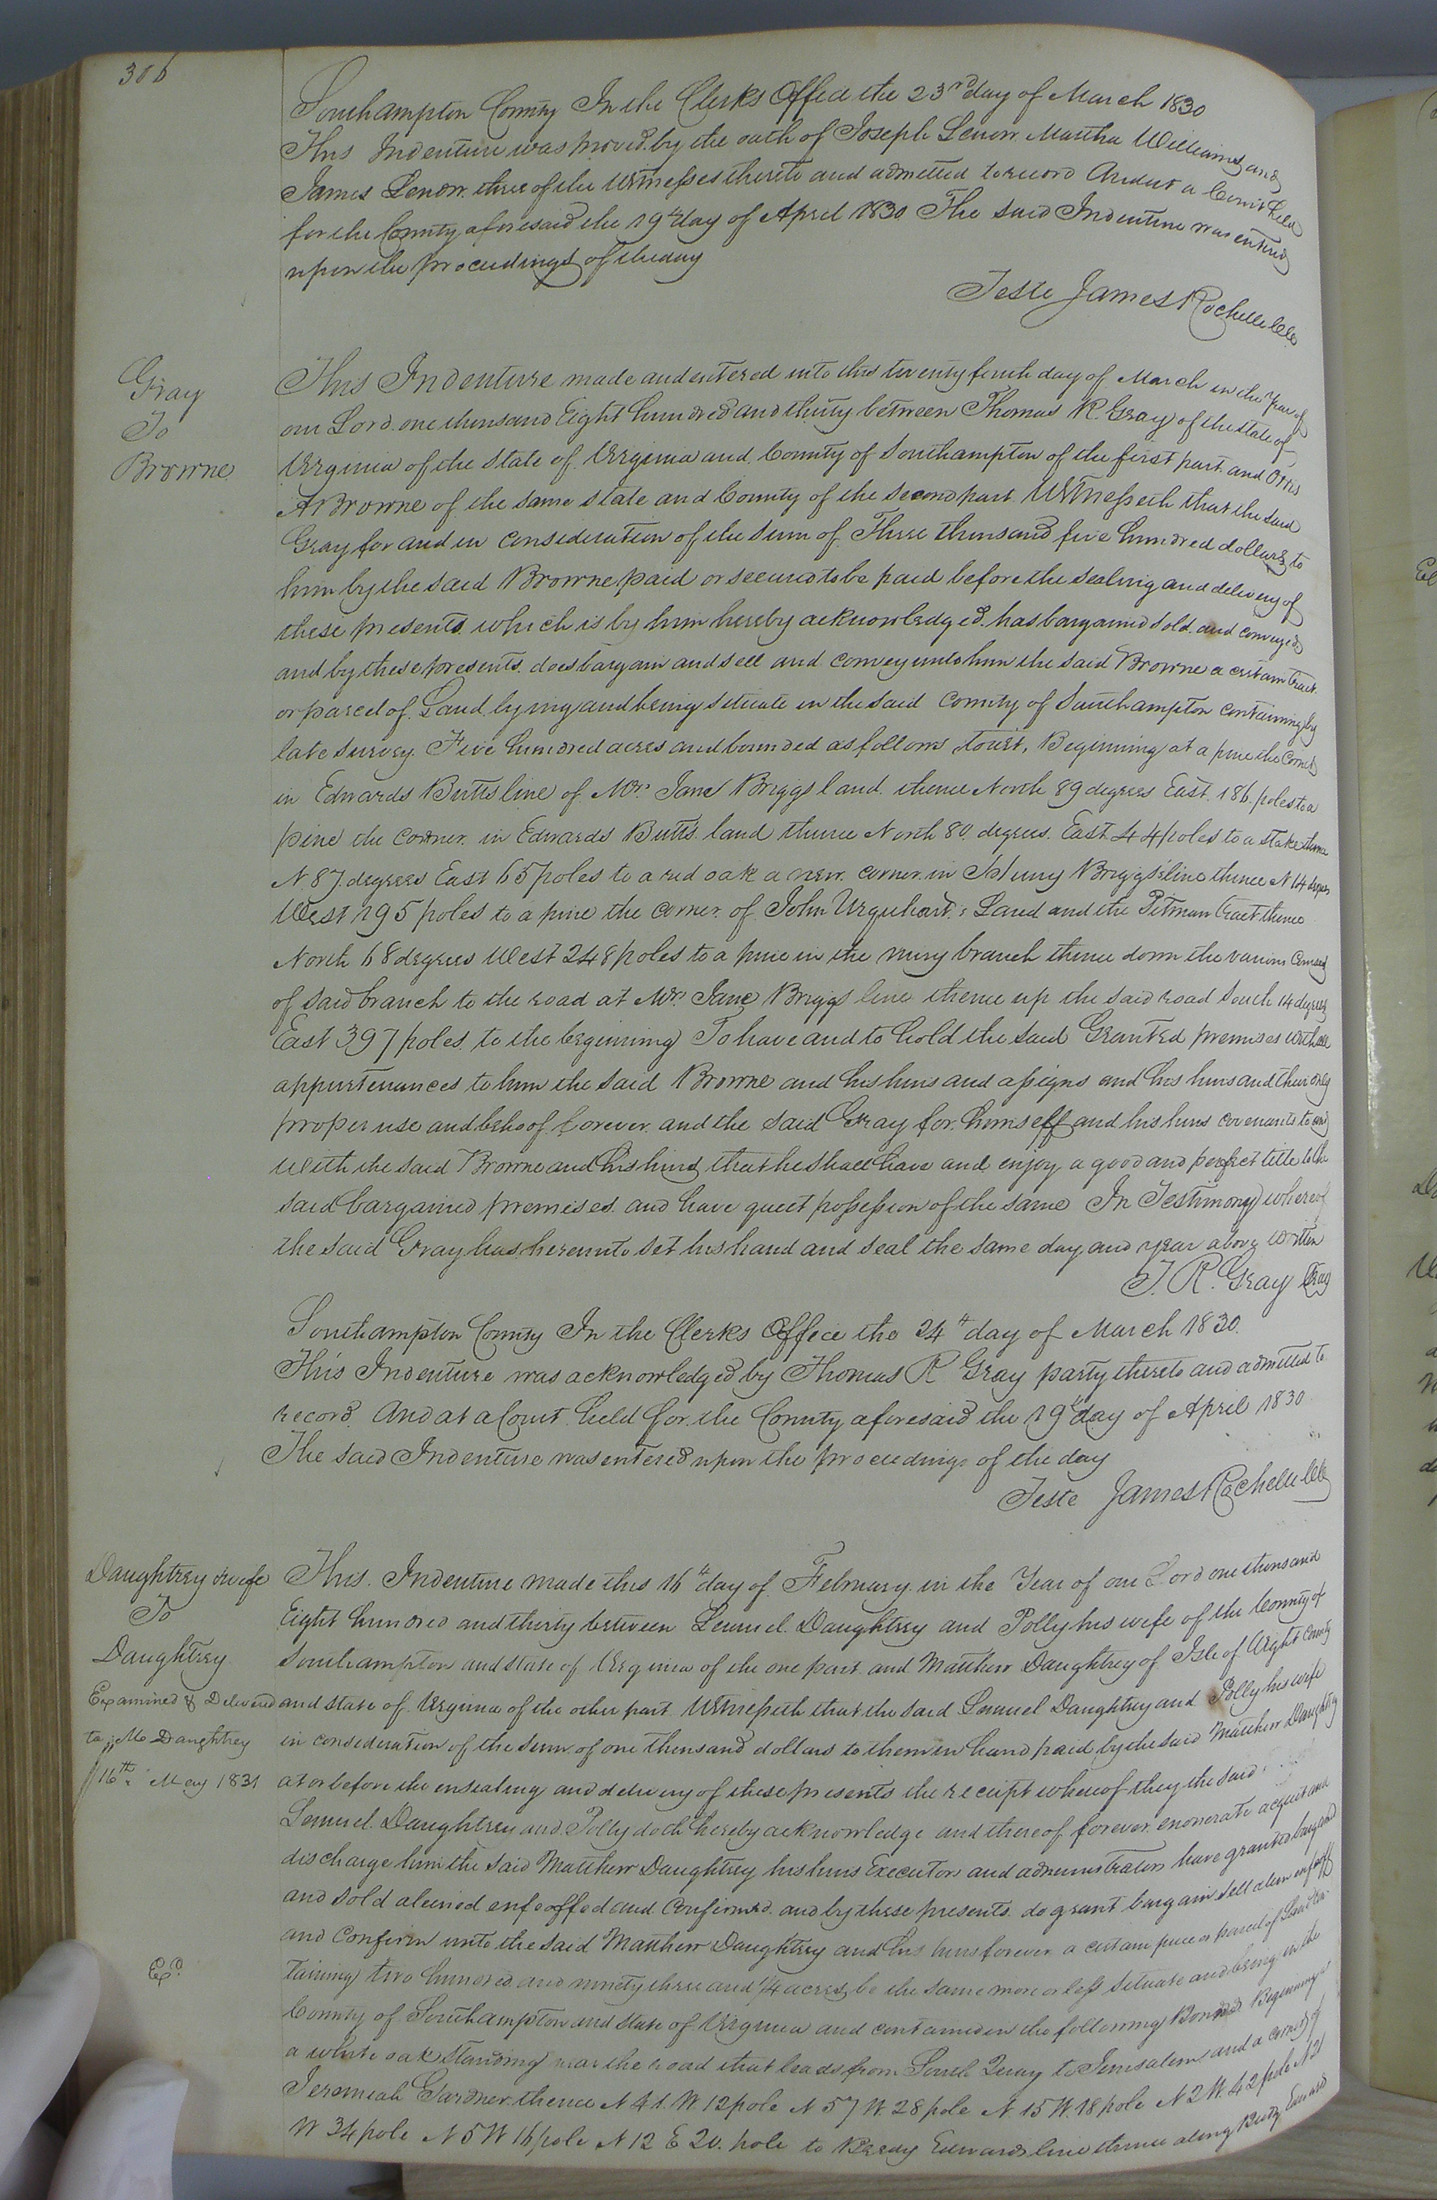 306
Southampton County In the Clerks Office the 23rd day of March 1830
This Indenture was proved by the oath of Joseph Lenow Martha Williams and
James Lenow three of the Witnesses thereto and admitted to record And at a Court held
for the County aforesaid the 19th day of April 1830 The said Indenture was entered
upon the proceedings of the day
Teste James Rochelle Clk
Gray
To
Browne
This Indenture made and entered into this twenty fourth day of March in the Year of
our Lord one thousand Eight hundred and thirty between Thomas R. Gray of the state of
Virginia of the State of Virginia and County of Southampton of the first part and Otis
A Browne of the same state and County of the second part Witnesseth that the said
Gray for and in consideration of the sum of Three thousand five hundred dollars to
him by the said Browne paid or secured to be paid before the sealing and delivery of
these presents which is by him hereby acknowledged has bargained sold and conveyed
and by these presents does bargain and sell and convey unto him the said Browne a certain tract
or parcel of Land lying and being situate in the said County of Southampton containing by
late survey Five hundred acres and bounded as follows towit, Beginning at a pine the corner
in Edwards Butts line of Mrs Jane Briggs land thence North 89 degrees East 186 poles to a
pine the corner in Edwards Butts land thence North 80 degrees East 44 poles to a stake thence
N 87 degrees East 65 poles to a red oak a new corner in Henry Briggs line thence N 14 degrees
West 195 poles to a pine the corner of John Urquhart's Land and the Pitman tract thence
North 68 degrees West 248 poles to a pine in the miry branch thence down the various courses
of said branch to the road at Mrs Jane Briggs line thence up the said road South 14 degrees
East 397 poles to the beginning To have and to hold the said Granted premises with all
appurtenances to him the said Browne and his heirs and assigns and his heirs and their only
proper use and behoof forever and the said Gray for himself and his heirs covenants to and
with the said Browne and his heirs that he shall have and enjoy a good and perfect title to the
said bargained premises and have quiet possession of the same In Testimony whereof
the said Gray has hereunto set his hand and seal the same day and year above written
T. R. Gray Seal
Southampton County In the Clerks Office the 24th day of March 1830
This Indenture was acknowledged by Thomas R Gray party thereto and admitted to
record And at a Court held for the County aforesaid the 19th day of April 1830
The said Indenture was entered upon the proceedings of the day
Teste James Rochelle Clk
Daughtrey & wife
To
Daughtrey
Examined & Delivered
to M Daughtrey
16th May 1831
Exd
This Indenture made this 16th day of February in the Year of our Lord one thousand
Eight hundred and thirty between Lemuel Daughtrey and Polly his wife of the County of
Southampton and state of Virginia of the one part and Matthew Daughtrey of Isle of Wight County
and state of Virginia of the other part Witnesseth that the said Lemuel Daughtrey and Polly his wife
in consideration of the sum of one thousand dollars to them in hand paid by the said Matthew Daughtrey
at or before the ensealing and delivery of these presents the receipt whereof they the said
Lemuel Daughtrey and Polly doth hereby acknowledge and thereof forever exonerate acquit and
discharge him the said Matthew Daughtrey his heirs Executors and administrators have granted bargained
and sold aliened enfeoffed and confirmed and by these presents do grant bargain sell alien enfeoff
and Confirm unto the said Matthew Daughtrey and his heirs forever a certain piece or parcel of Land con
taining two hundred and ninety three and 1/4 acres be the same more or less situate and being in the
County of Southampton and state of Virginia and contained in the following Bounds Beginning at
a white oak standing near the road that leads from South Quay to Jerusalem and a corner of
Jeremiah Gardner thence N 41 W 12 pole N 57 W 28 pole N 15 W 18 pole N 2 W 42 pole N 21
W 34 pole N 5 W 16 pole N 12 E 20 pole to Edwards line thence along Edwards